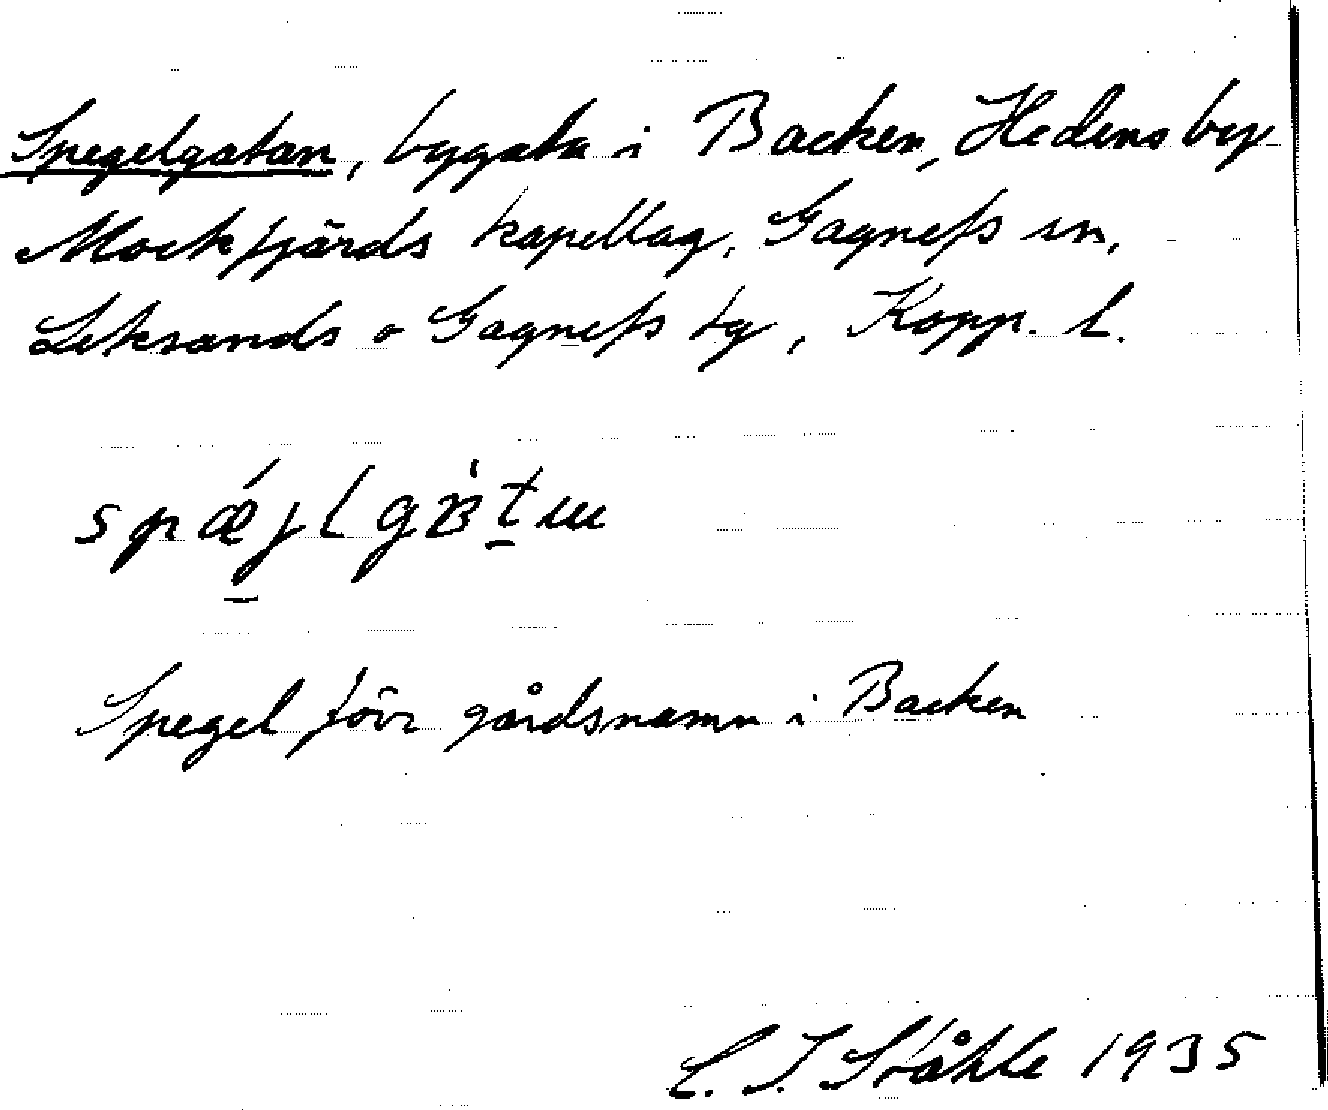 Spegelgatan, bygata i Backen, Hedens by
Mockfjärds kapellag, Gagnefs sn,
Leksands o Gagnefs tg, Kopp. l.
Spegel förr gårdsnamn i Backen
C. I. Ståhle 1935